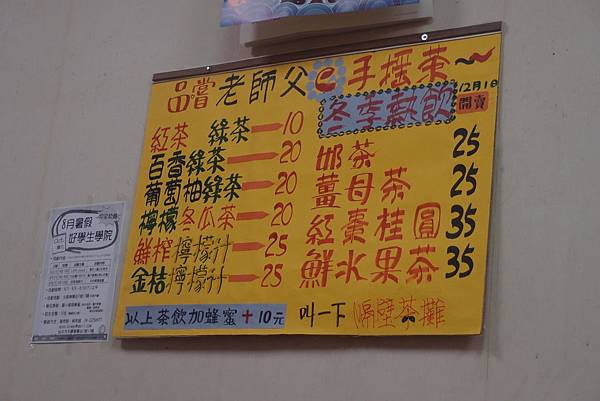 品嘗老師父e手搖茶～
冬季熱飲 12月1日開賣
紅茶 綠茶—10
百香綠茶—20
葡萄柚綠茶—20
檸檬冬瓜茶—20
鮮榨檸檬汁—25
金桔檸檬汁—25
以上茶飲加蜂蜜+10元
奶茶 25
薑母茶 25
紅棗桂圓 35
鮮水果茶 35
叫一下 隔壁茶攤
8月暑假
好學生學院